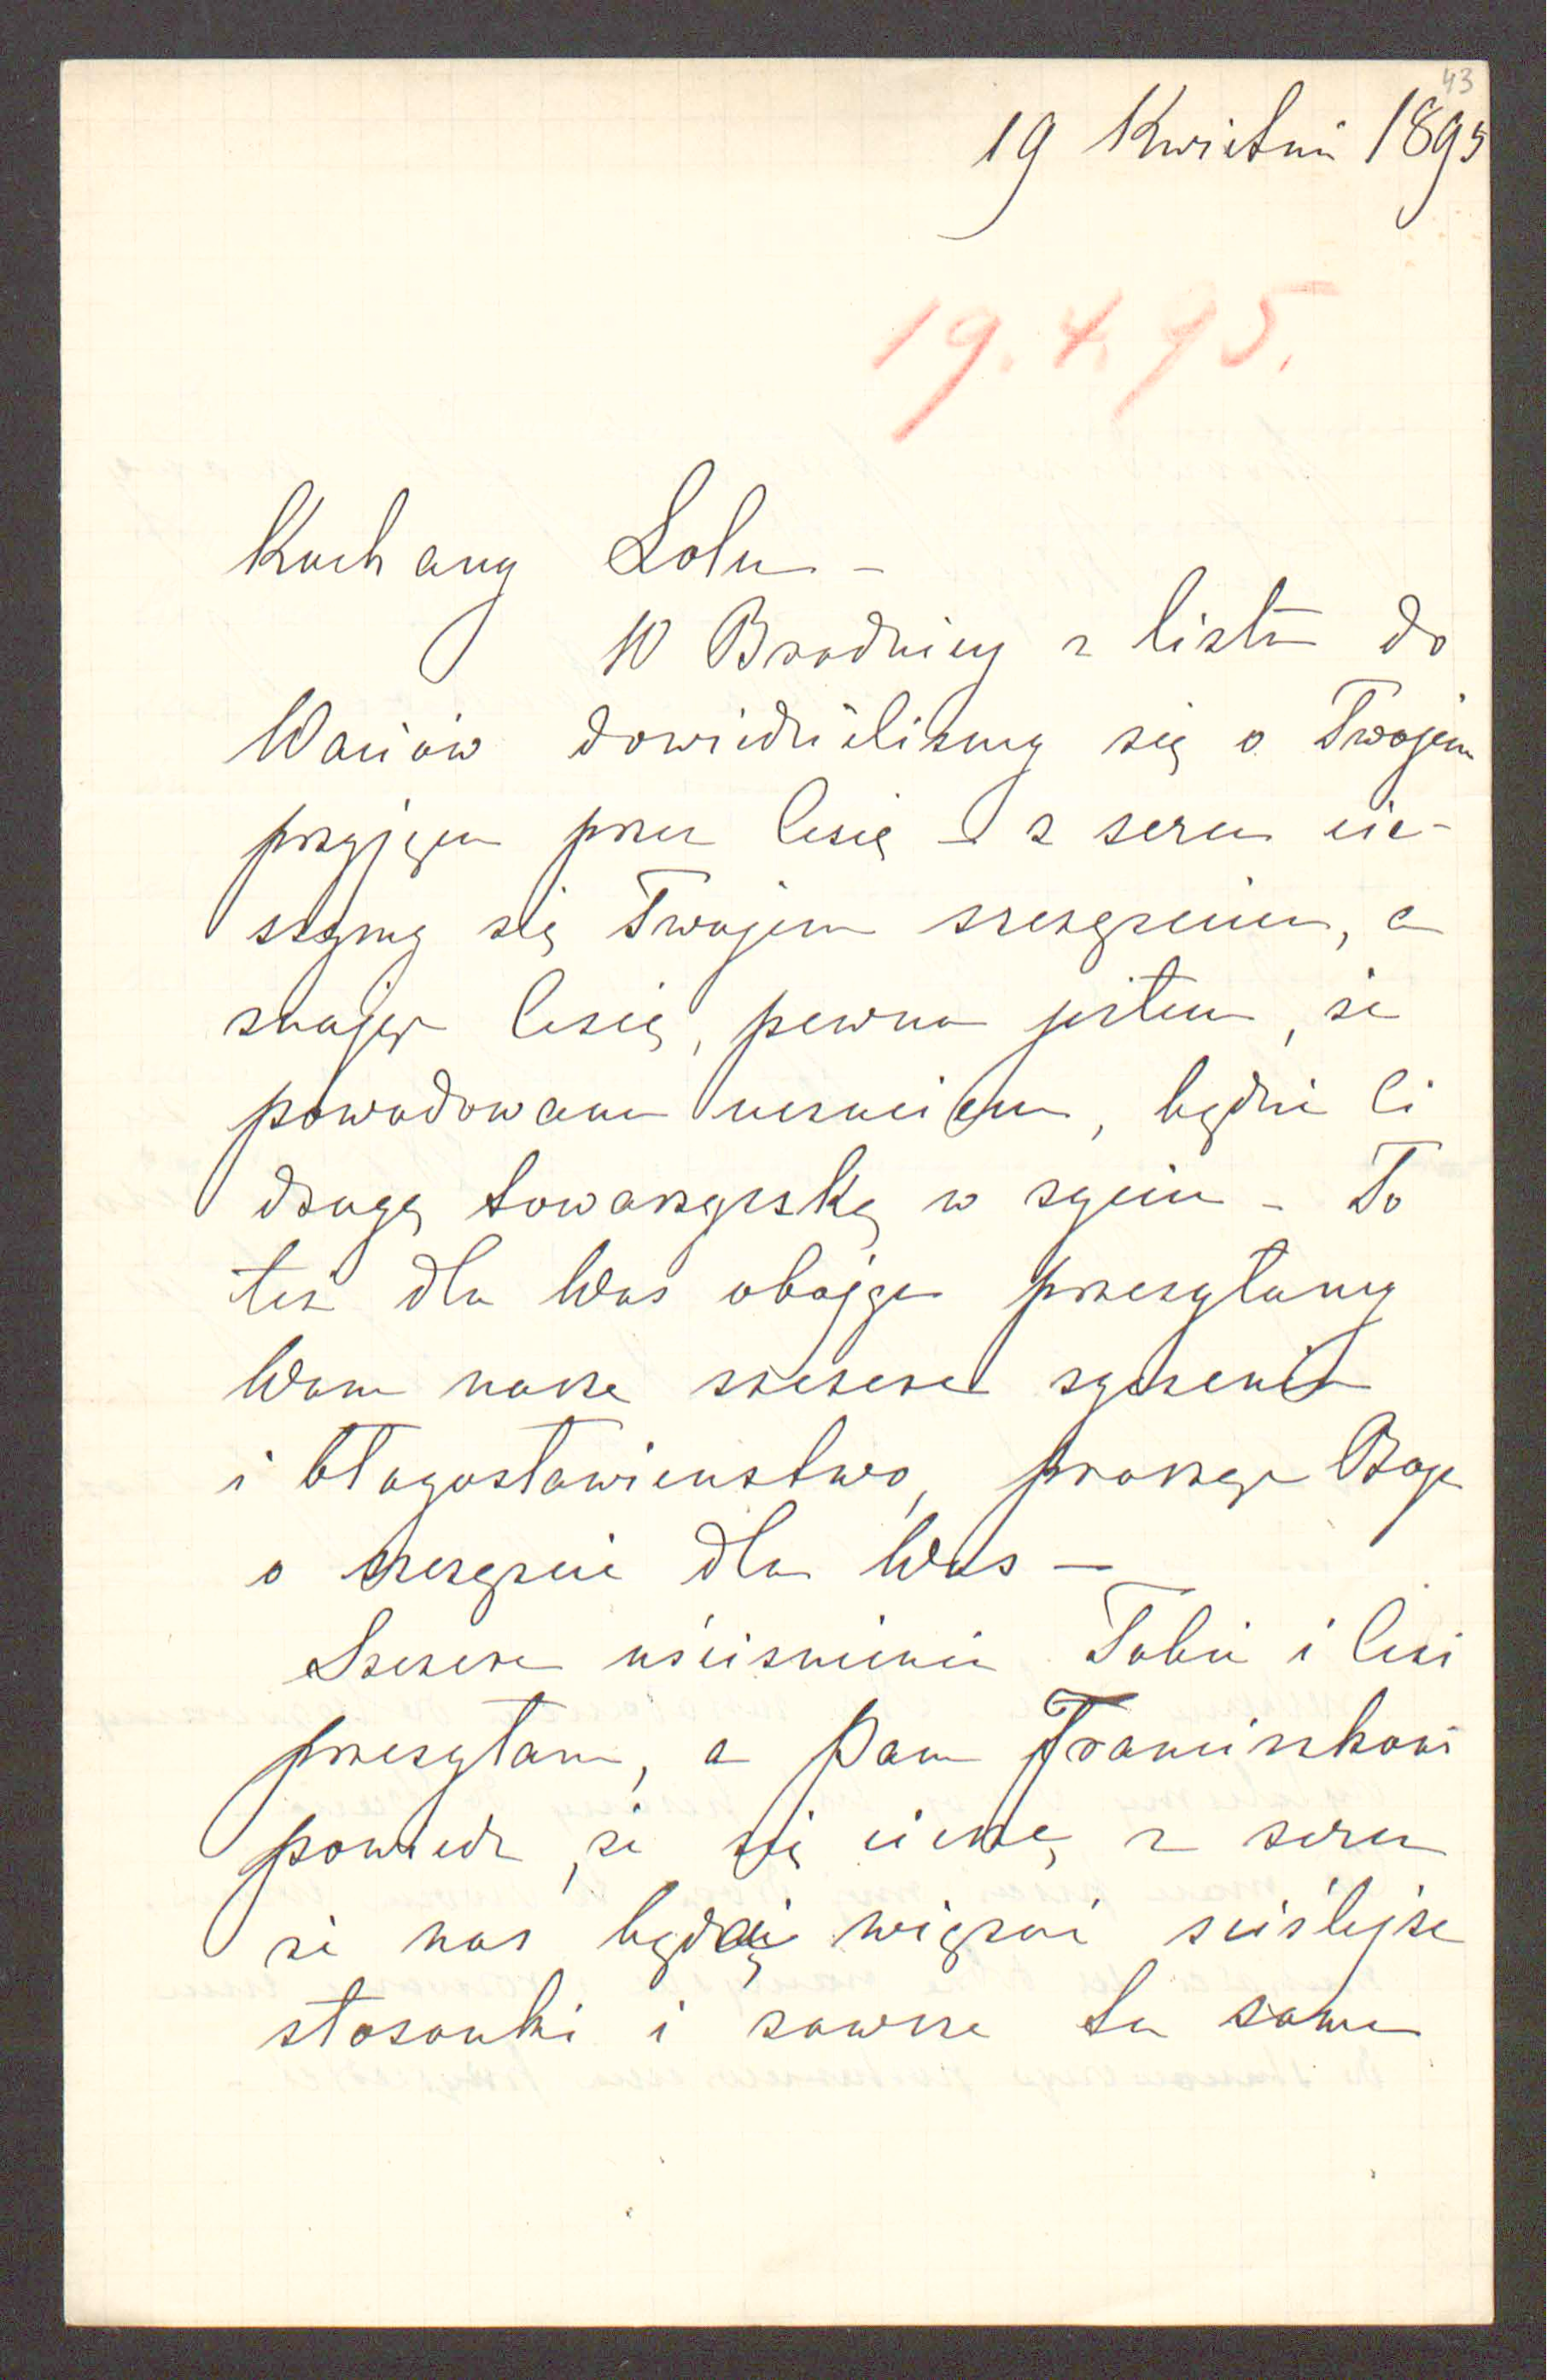 43
19 Kwietnia 1895
19.4.95.
Kochany Lolu –
W Brodnicy z listu do
Waciów dowiedzieliśmy się o Twojem
przyjęciu przez Cesię – z serca cie-
szymy się Twojem szczęściem, a
znając Cesię, pewna jestem, że
powodowana uczuciem, będzie Ci
drogą towarzyszką w życiu – To
też dla Was obojga przesyłamy
Wam nasze szczere życzenia
i błogosławieństwo, prosząc Boga
o szczęście dla Was –
Szczere uściśnienia Tobie i Cesi
przesyłam, a Panu Franciszkowi
powiedz, że się cieszę z serca
że nas będą więzać ściślejsze
stosunki i zawsze ta sama